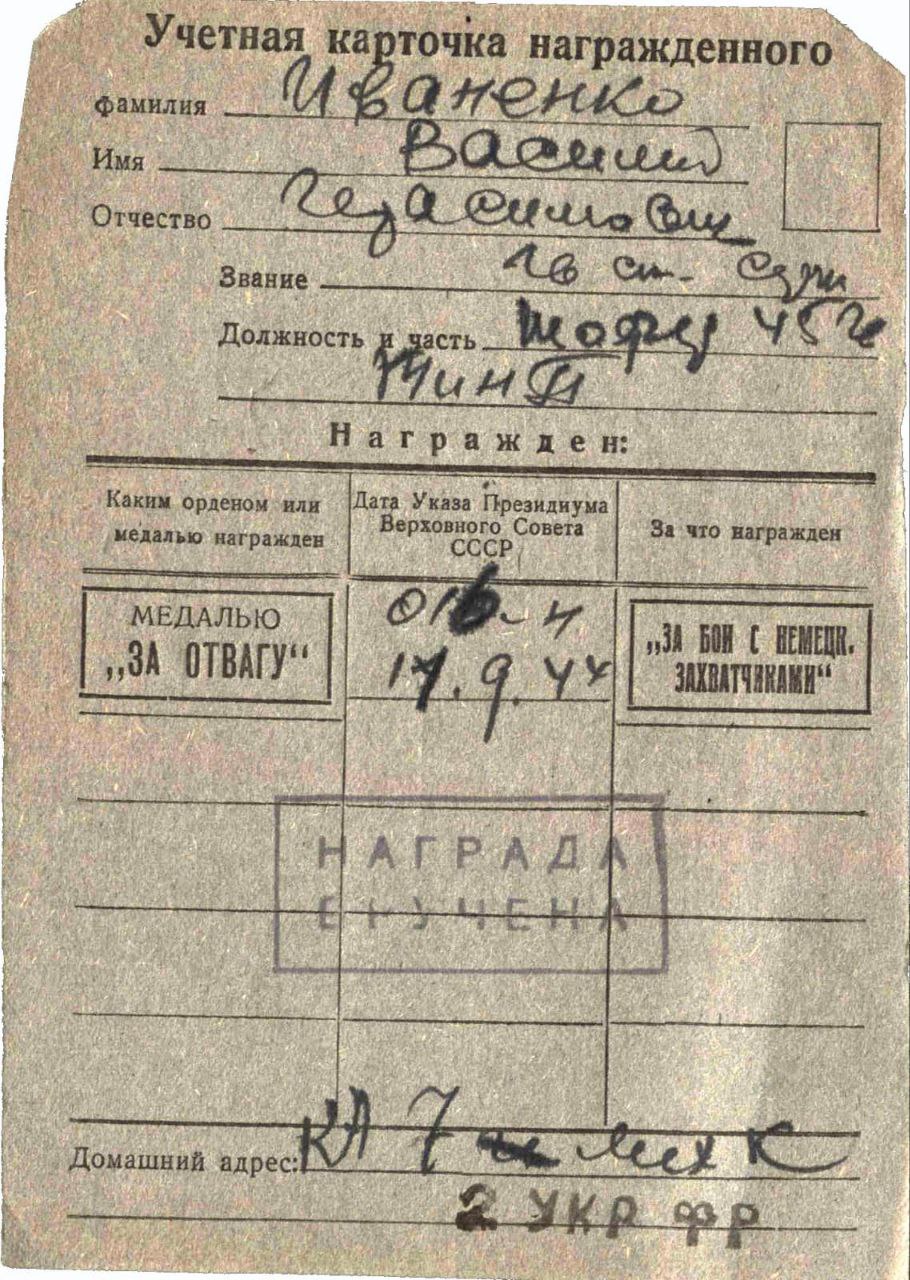 Учетная карточка награжденного
фамилия Иваненко
Имя Василий
Отчество Герасимович
Звание гв ст. серж
Должность и часть шофер 45 г
минп
Награжден:
Каким орденом или
медалью награжден
Дата Указа Президиума
Верховного Совета
СССР
За что награжден
МЕДАЛЬЮ
„ЗА ОТВАГУ“
016-н
17.9.44
„ЗА БОИ С НЕМЕЦК.
ЗАХВАТЧИКАМИ“
НАГРАДА
ВРУЧЕНА
Домашний адрес: КА 7 мех к
2 УКР ФР